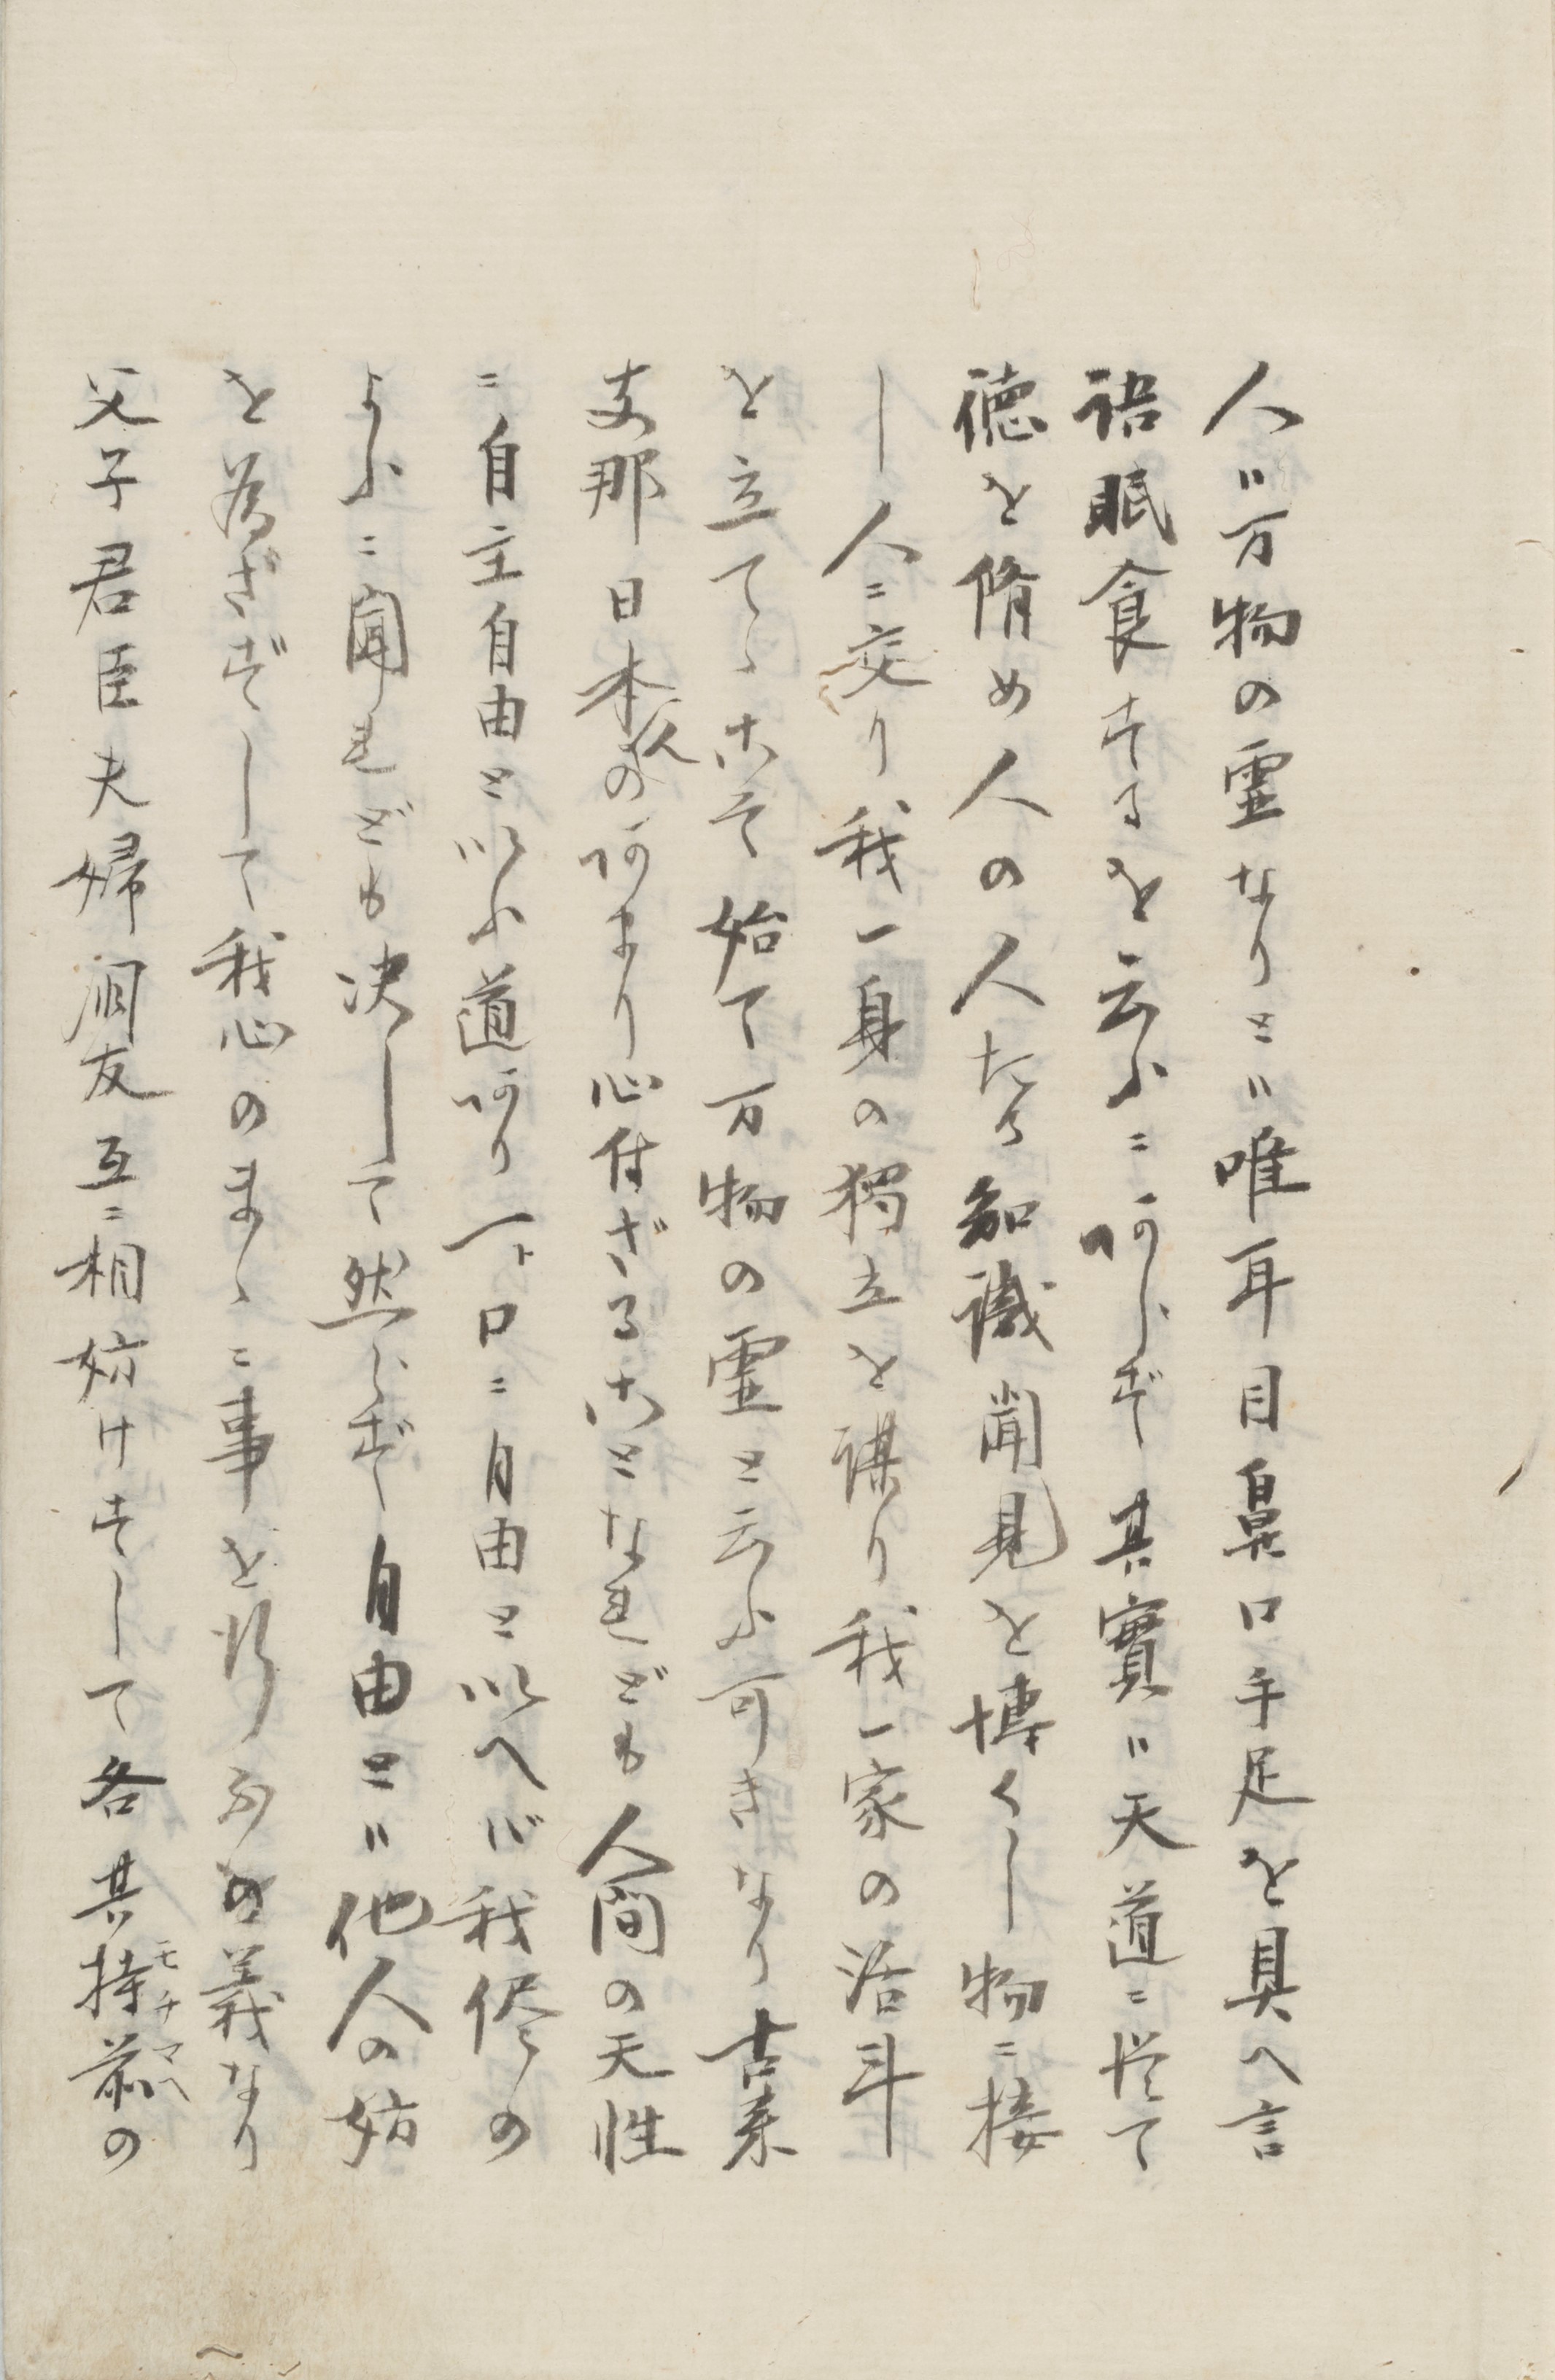 人ハ万物の霊なりとハ唯耳目鼻口手足を具へ言
語眠食するを云ふニあらず其實ハ天道ニ従て
徳を脩め人の人たる知識聞見を博くし物ニ接
し人ニ交り我一身の獨立を謀り我一家の活計
を立てゝこそ始て万物の霊と云ふ可きなり古来
支那日本人のあまり心付ざることなれども人間の天性
ニ自主自由といふ道あり一ト口ニ自由といへバ我侭の
よふニ聞れども決して然らず自由とハ他人の妨
を為さずして我心のまゝニ事を行ふの義なり
父子君臣夫婦朋友互ニ相妨けずして各其持前の
モチマヘ